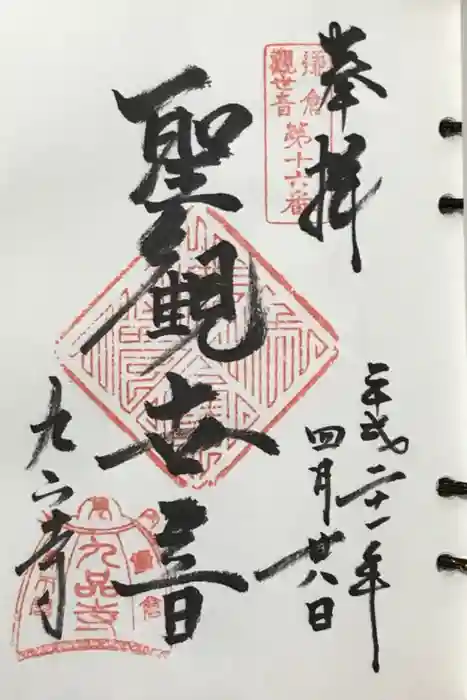 奉拝
鎌倉
觀世音
第十六番
聖觀世音
平成二十一年
四月廿八日
九品寺
九品寺